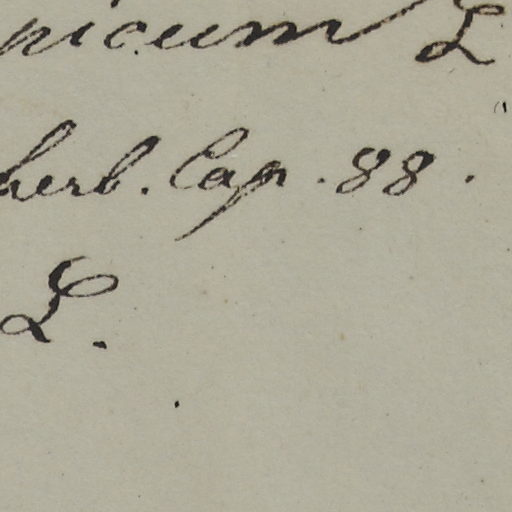 picum L
herb. Cap. 88.
L.